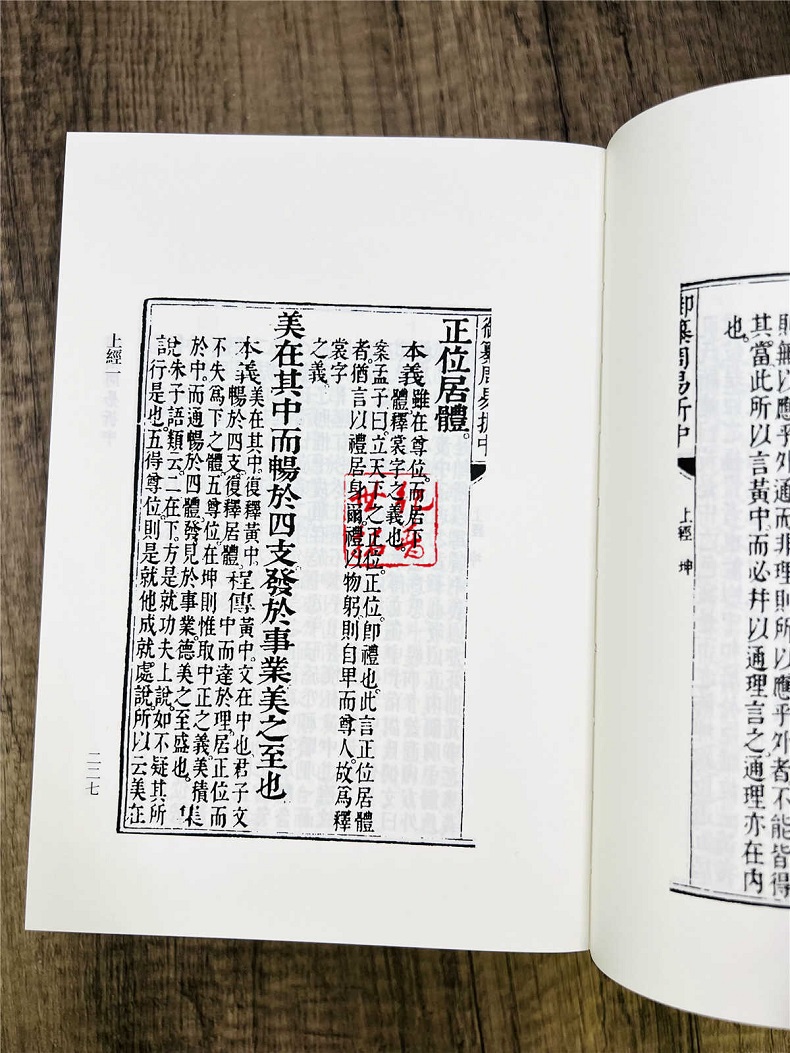 則無以應乎外通而非理則所以應乎外者不能皆得
其當此所以言黃中而必幷以通理言之通理亦在內
也。
御纂周易折中
上經 坤
御纂周易折中
正位居體。
本義雖在尊位。而居下
體。釋裳字之義也。
案孟子曰。立天下之正位。正位。即禮也。此言正位居體
者。猶言以禮居身爾。禮以物躬。則自卑而尊人。故為釋
裳字
之義。
美在其中而暢於四支發於事業美之至也
本義美在其中。復釋黃中。
暢於四支。復釋居體。
程傳黃中。文在中也。君子文
中而達於理。居正位而
不失為下之體。五尊位。在坤則惟取中正之義。美積
於中。而通暢於四體。發見於事業。德美之至盛也。集
說朱子語類云。二在下。方是就功夫上說。如不疑其所
行是也。五得尊位。則是就他成就處說。所以云美在
上經一
二二七